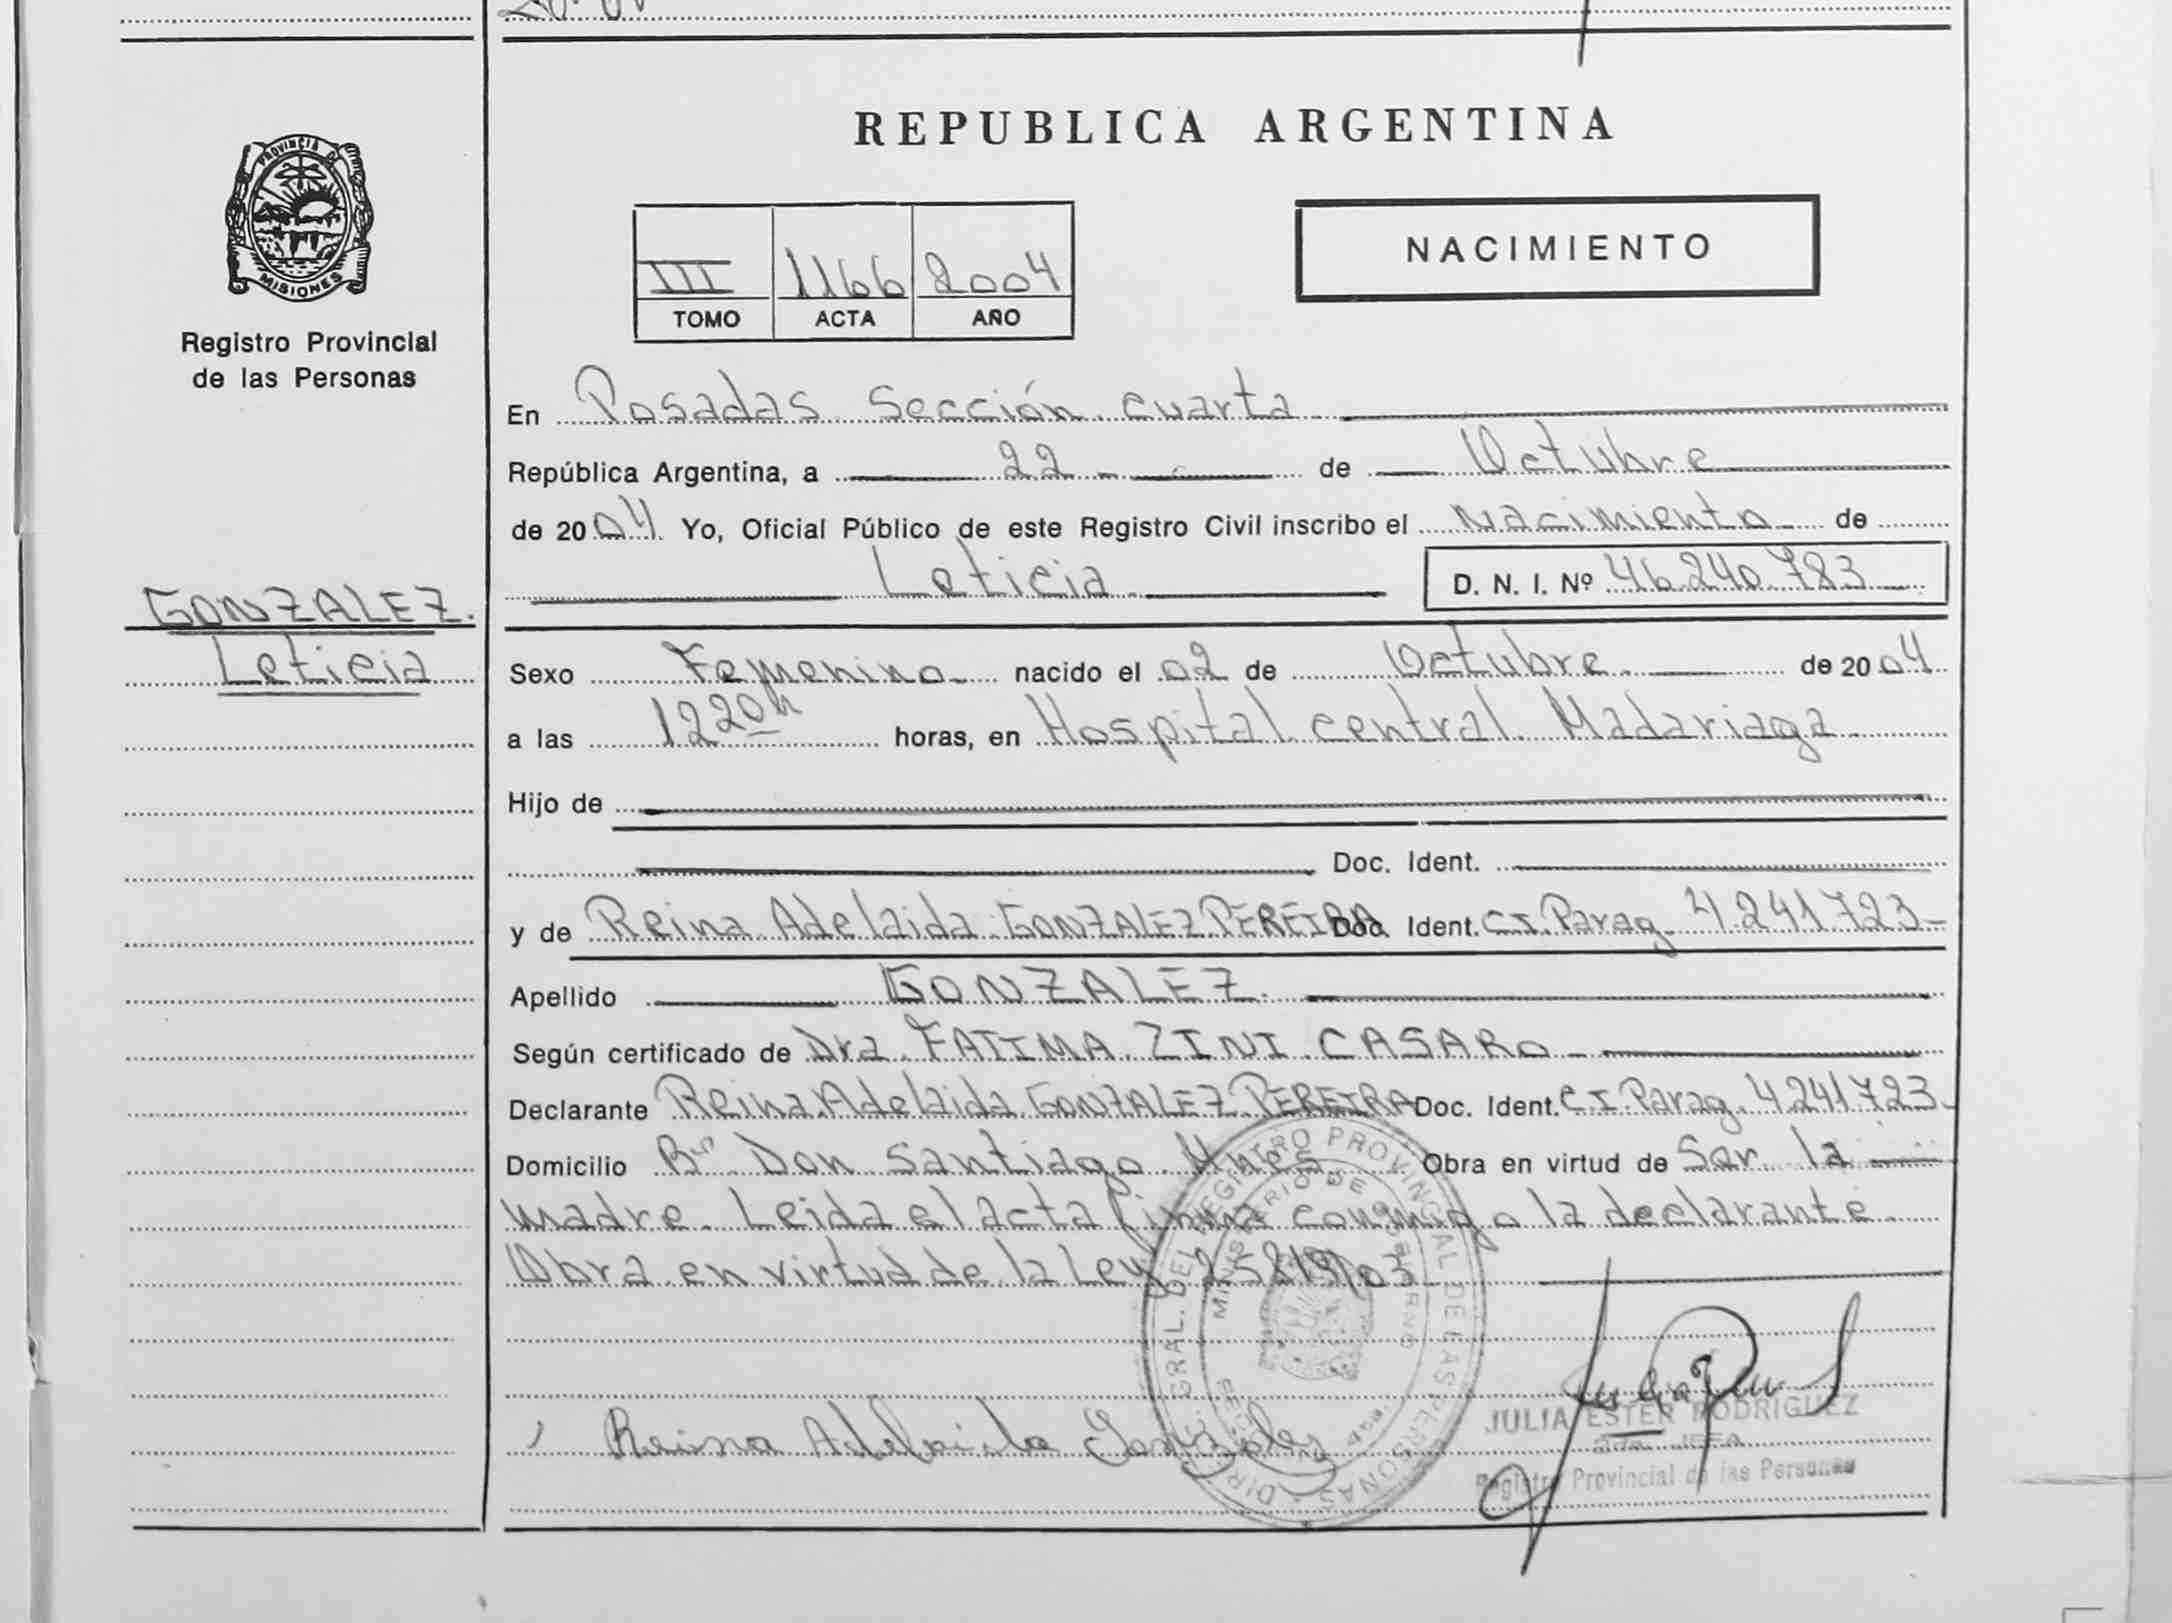 REPUBLICA ARGENTINA
PROVINCIA DE
MISIONES
Registro Provincial
de las Personas
NACIMIENTO
III 1166 2004
TOMO ACTA AÑO
En Posadas Sección cuarta
República Argentina, a 22 de Octubre
de 2004 Yo, Oficial Público de este Registro Civil inscribo el Nacimiento de
Leticia D. N. I. Nº 46.240.783
GONZALEZ.
Leticia
Sexo Femenino nacido el 02 de Octubre de 2004
a las 12 20h horas, en Hospital central Madariaga
Hijo de
Doc. Ident.
y de Reina Adelaida GONZALEZ PEREIRA Doc. Ident. C.I. Parag. 4.241.723
Apellido GONZALEZ.
Según certificado de Dra. FATIMA ZINI CASARO
Declarante Reina Adelaida GONZALEZ PEREIRA Doc. Ident. C.I. Parag. 4.241.723
Domicilio Bº Don Santiago Obra en virtud de Ser la
madre. Leida el acta firma conmigo la declarante.
Obra en virtud de la Ley 25819/03
DIREC. GRAL. DEL REGISTRO PROVINCIAL DE LAS PERSONAS
MINISTERIO DE GOBIERNO
Reina Adelaida Gonzalez
JULIA ESTER RODRIGUEZ
2da. JEFA
Registro Provincial de las Personas